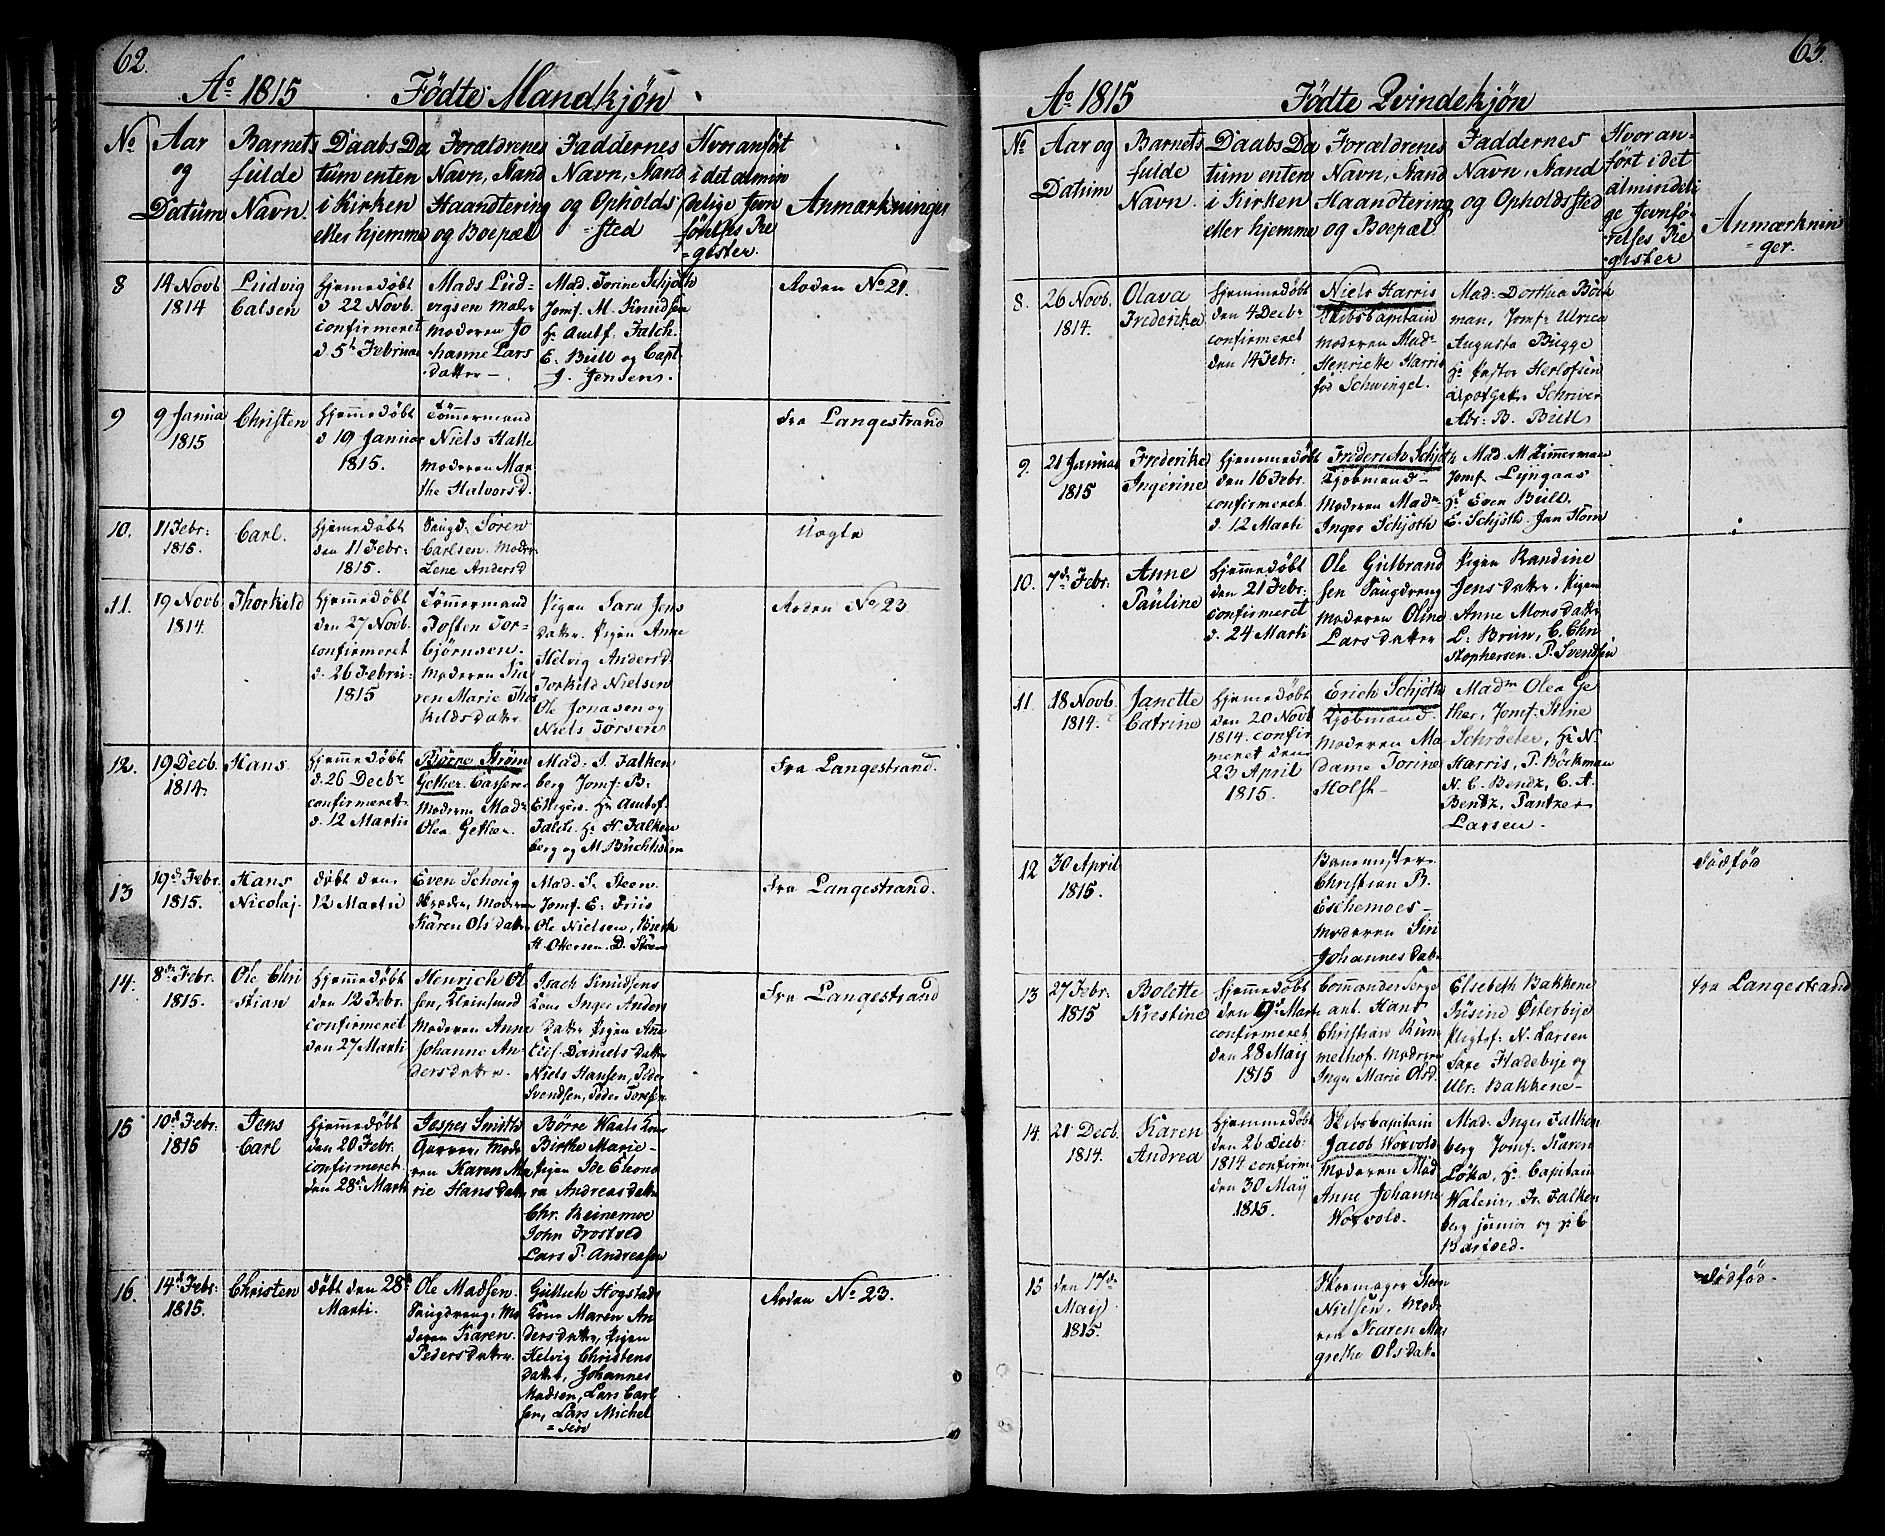 62.
Ao 1815 Födte Mandkjön
No
Aar og Datum
Barnets fulde Navn.
Daabs Datum enten i Kirken eller hjemme
Forældrenes Navn, Stand Haandtering og Boepæl
Faddernes Navn, Stand og Opholdssted
Hvor anfört i det almindelige Jevnförelses Register.
Anmærkninger
8
14 Novb 1814
Ludvig Calsen
hjemmedöbt
d 22 Novb.
confirmeret
d 5t Februar
Mads Lud-
vigsen
moderen Jo
hanne Lars
datter
Mad. Torine Schjöth
Jomf. M. Knudsen
Hr Amtf. Falch.
E. Bull og Capt.
J. Jensens.
Roden No 21.
9
9 Janua 1815
Christen
hjemmedöbt
d 19 Januar
1815.
Tömmermand
Niels Halle
moderen Mar
the Halvorsd.
fra Langestrand
10.
11 Febr: 1815.
Carl.
hjemmedöbt
den 11 Febr:
1815.
Sören
Carlsen. Moder
Lene Andersd
Uægte
11.
19 Novb 1814.
Thorkild
hjemmedöbt
den 27 Novb.
confirmeret
d. 26 Februi-
1815
Tömmermand
Tosten Tor-
björnsen.
moderen Ka
ren Marie Thor
kildsdatter
Pigen Sara Jens
datter. Pigen Anne
Helvig Andersd.
Torkild Nielsen
Ole Jonasen og
Niels Torsen
Roden No 23
12.
19 Decb. 1814.
Hans
hjemmedöbt
d. 26 Decbr
confirmeret
d. 12 Martii
Björne Ström
Gether. Casserer
Moderen Madr
Olea Gether.
Mad. S. Falken
berg Jomf. B.
Elligers. Hr Amtsf.
Falch. Hr H. Falken
berg og M. Buchholm
Fra Langestrand.
13
19d Febr. 1815.
Hans Nicolaj.
döbt den
12 Martii
Even Schoug
Moderen
Karen Olsdatter
Mad. S. Steen.
Jomf. E. Friis
Ole Nielsen,
H. Ottersen. D. Steen
Fra Langestrand.
14.
8de Febr. 1815.
Ole Chri
stian
hjemmedöbt
den 12 Febr.
confirmeret
den 27 Marti
Henrich Ol
sen, Kleinsmed
Moderen Anne
Johanne An
dersdatter.
Isach Knudsens
Kone Inger Anders
datter Pigen Ane
Elis. Daniels datter
Niels Hansen, Peder
Svendsen, Peder Toresen
Fra Langestrand
15
10de Febr: 1815
Jens Carl
hjemmedöbt
den 20 Febr.
confirmeret
den 28de Marti
Jesper Smidth
Garver, Mode
ren Karen Ma
rie Hansdatter
Börre Waals Kone
Birthe Marie
Pigen Ide Eleono
ra Andreasdatter
Chr. Reinemoe
John Frostved
Lars P. Andreasen
16.
14d Febr: 1815.
Christen
döbt den 28de
Marti.
Ole Madsen.
Saugdreng, Mo
deren Karen
Pedersdatter.
Gullich Hogstads
Kone Maren An
dersdatter, Pigen
Helvig Christens
datter, Johannes
Madsen, Lars Carl
sen, Lars Michel
sen
Roden No 23.
63.
Ao 1815 Födte Qvindekjön
No
Aar og Datum
Barnets fulde Navn.
Daabs Datum enten i Kirken eller hjemme
Forældrenes Navn, Stand Haandtering og Boepæl
Faddernes Navn, Stand og Opholdssted
Hvor anfört i det almindelige Jevnförelses Register
Anmærkninger.
8.
26 Novb. 1814.
Olava Frederike
hjemmedöbt
den 4 Decbr
confirmeret
den 14 Febr:
Niels Harris
Skibscapitain
moderen Madr
Henriette Harris
föd Schwingel.
Mad: Dorthea Böck
man, Jomfr Ulrica
Augusta Bugge
Hr Pastor Herlofsen
Apotheker Schriver
Abr: B. Bull
9.
21 Januar 1815
Frederike Ingerine
hjemmedöbt
den 16 Febr.
confirmeret.
d. 12 Marti
Friderich Schjöth
Kjöbmand
Moderen Madm
Inger Schjöth
Mad. M. Zimmerman
Jomf. Lyngaas
Hr Even Bull.
E. Schjöth Jan Horn
10.
7de Febr.
Anne Pauline
hjemmedöbt
den 21 Febr.
confirmeret
d. 24 Marti
Ole Gulbrand
sen Saugdreng
moderen Oline
Larsdatter
Pigen Randine
Jensdatter, Pigen
Anne Monsdatter
L. Brun, C. Chri
stophersen. P. Svendsen
11.
18 Novb. 1814.
Janette Catrine
hjemmedöbt
den 20 Novb
1814. confir
meret den
23 April
1815.
Erich Schjöth
Kjöbmand.
Moderen Ma
dame Torine
Holst
Madm Olea Ge
ther, Jomf. Stine
Schröeter, Hr N.
Harris, P. Böckman
N. C. Bentz, C. A.
Bentz, Pantzer
Larsen.
12
30 April 1815.
Christian B.
Eschemoes
Moderen Siri
Johannesdatr
dödföd
13
27 Febr. 1815
Bolette Kirstine
hjemmedöbt
den 9d Marti
confirmeret
den 28 May
1815
Commandersergeant. Hans
Christian Rum
melhof. Moderen
Inger Marie Olsd.
Elsebeth Bakkene
Gusind Österbye
N. Larsen
Saxe Fladebye og
Ulr. Bakkene
fra Langestrand
14.
21 Decb. 1814.
Karen Andrea
hjemmedöbt
den 26 Decb:
1814 confirm
den 30 May
1815.
Skibscapitain
Jacob Worvold.
Moderen Mad
Anne Johanne
Worvold.
Mad. Inger Falken
berg Jomf. Karen
Löka, Hr Capitain
Waleur, Fr. Falken
berg junior og
Barsoed.
15
den 17de May 1815.
Skomager Steen
Nielsen. Mode
ren Karen Mar
grethe Olsdatr
dödföd.